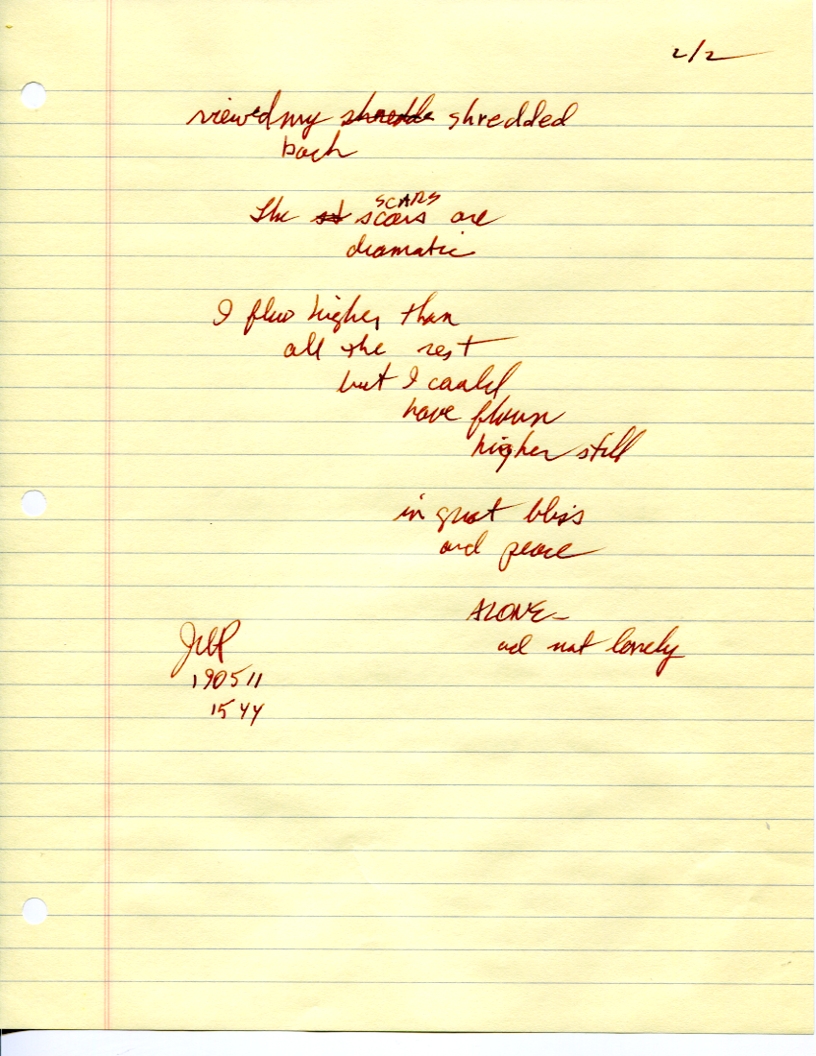 2/2
viewed my shredde shredded
back
SCARS
The st scars are
dramatic
I flew higher than
all the rest
but I could
have flown
higher still
in great bliss
and peace
ALONE—
and not lonely
190511
1544